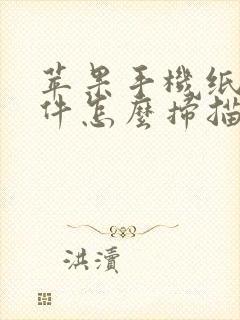 苹果手機紙
件怎麼掃描
洪瀆